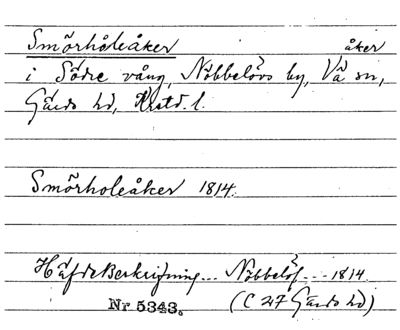 Smörhåleåker åker
i Södre vång, Nöbbelövs by, Vä sn,
Gärds hd, Krstd. l.
Smörholeåker 1814.
HäfdeBeskrifning... Nöbbelöf... 1814.
Nr 5343. (C 27 Gärds hd)